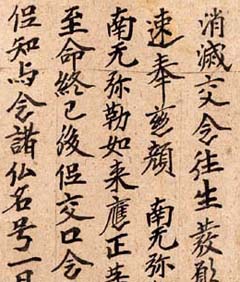 消滅交令往生發願
速奉慈顏 南无弥
南无弥勒如来應正等
至命終已後但交口令
但知与念諸仏名号一日